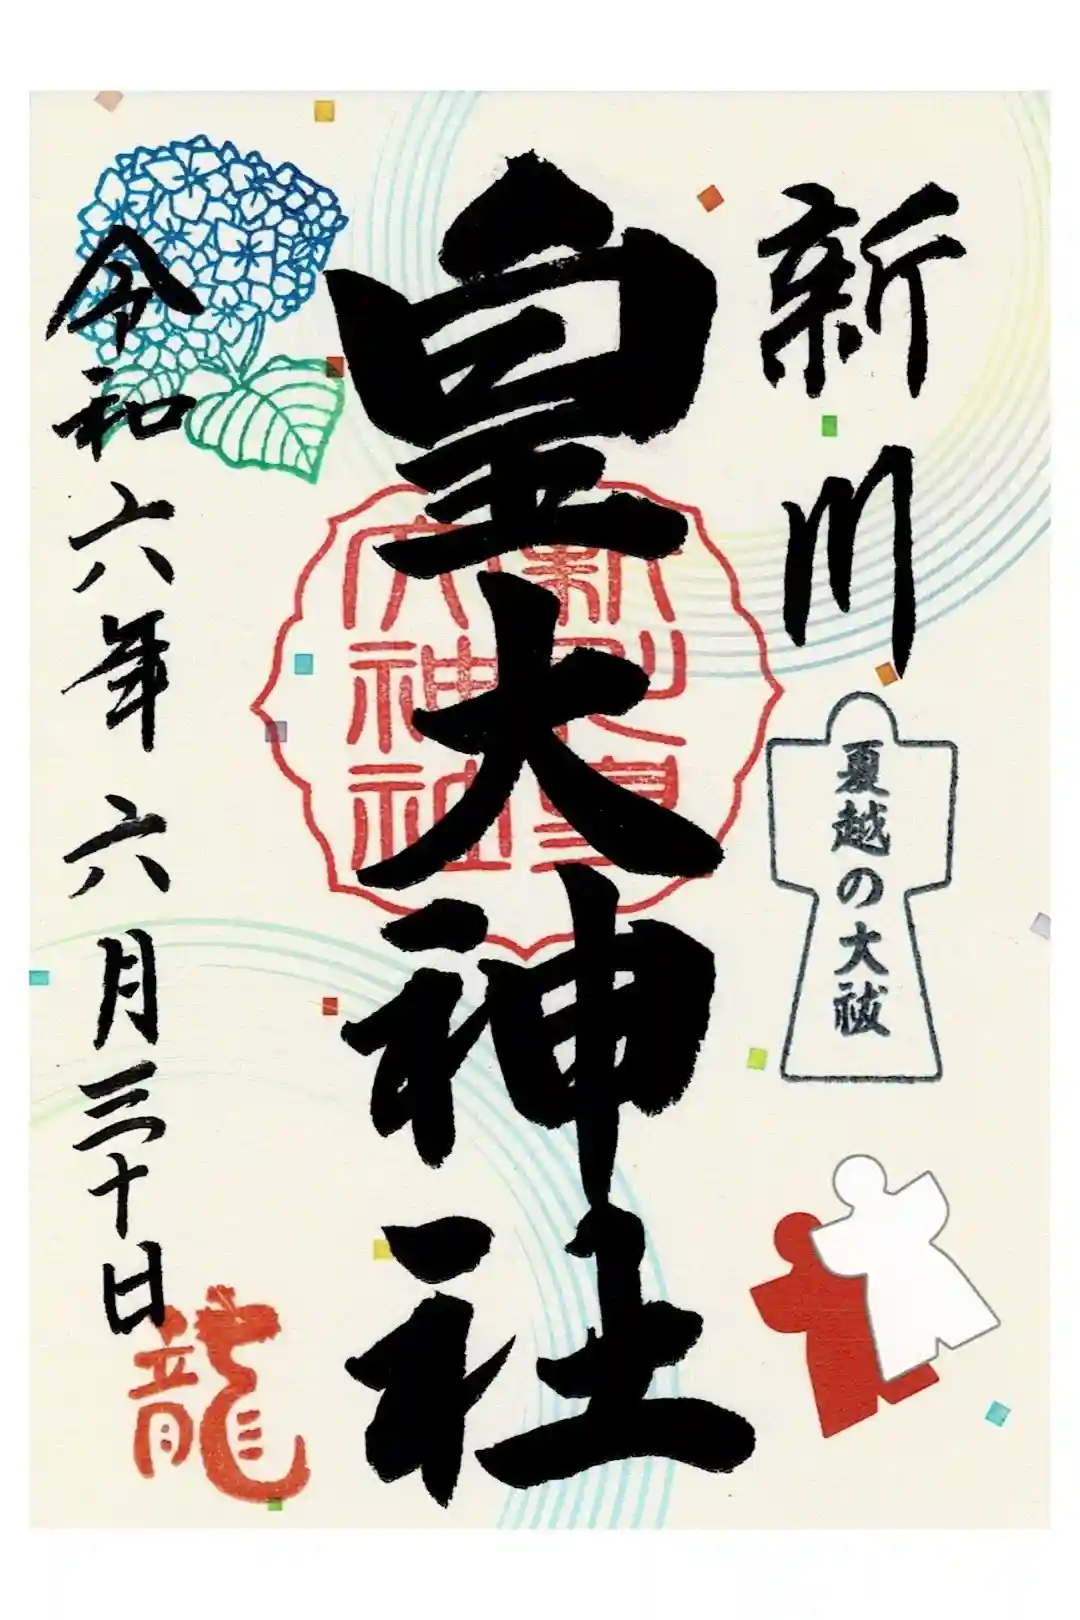 新川
夏越の大祓
皇大神社
新川皇
大神社
令和六年六月三十日
龍